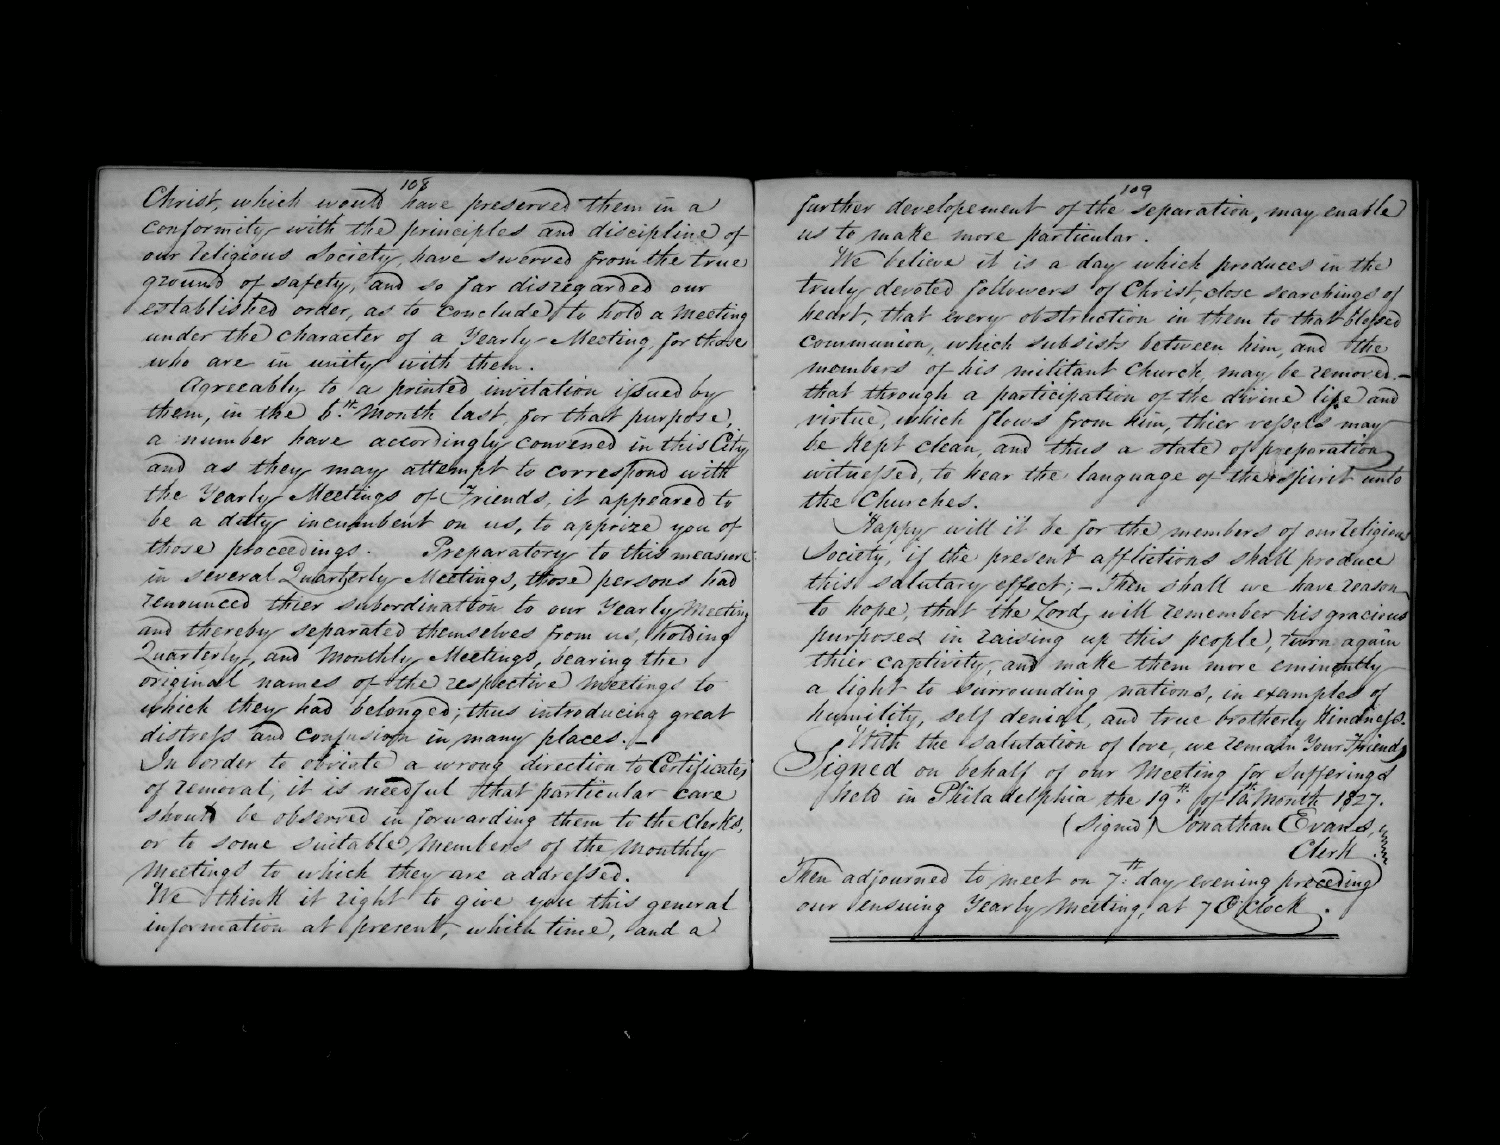 108
Christ, which would have preserved them in a
conformity with the principles and discipline of
our religious Society, have swerved from the true
ground of safety, and so far disregarded our
established order, as to conclude to hold a Meeting
under the character of a Yearly-Meeting for those
who are in unity with them.
Agreeably to a printed invitation issued by
them, in the 6th Month last, for that purpose,
a number have accordingly convened in this City
and as they may attempt to correspond with
the Yearly Meetings of Friends, it appeared to
be a duty incumbent on us, to apprize you of
those proceedings. Preparatory to this measure
in several Quarterly Meetings, those persons had
renounced thier subordination to our Yearly Meeting
and thereby separated themselves from us, holding
Quarterly, and Monthly Meetings, bearing the
original names of the respective meetings to
which they had belonged; thus introducing great
distress and confusion in many places. —
In order to obviate a wrong direction to Certificates
of removal, it is needful that particular care
should be observed in forwarding them to the Clerks,
or to some suitable Members of the Monthly
Meetings to which they are addressed.
We think it right to give you this general
information at present, which time, and a
109
further developement of the separation, may enable
us to make more particular.
We believe it is a day which produces in the
truly devoted followers of Christ, close searchings of
heart, that every obstruction in them to that blessed
communion, which subsists between him, and the
members of his militant Church, may be removed—
that through a participation of the divine life and
virtue, which flows from him, thier vessels may
be kept clean, and thus a state of preparation
witnessed, to hear the language of the Spirit unto
the Churches.
Happy will it be for the members of our religious
Society, if the present afflictions shall produce
this salutary effect; – Then shall we have reason
to hope, that the Lord, will remember his gracious
purposes in raising up this people, turn again
thier captivity, and make them more eminently
a light to surrounding nations, in examples of
humility, self denial, and true brotherly kindness.
With the salutation of love, we remain Your Friends,
Signed on behalf of our Meeting for Sufferings
held in Philadelphia the 19th of 10th Month 1827.
(Signed) Jonathan Evans,
Clerk
Then adjourned to meet on 7th day evening preceding
our ensuing Yearly Meeting, at 7 O'Clock.